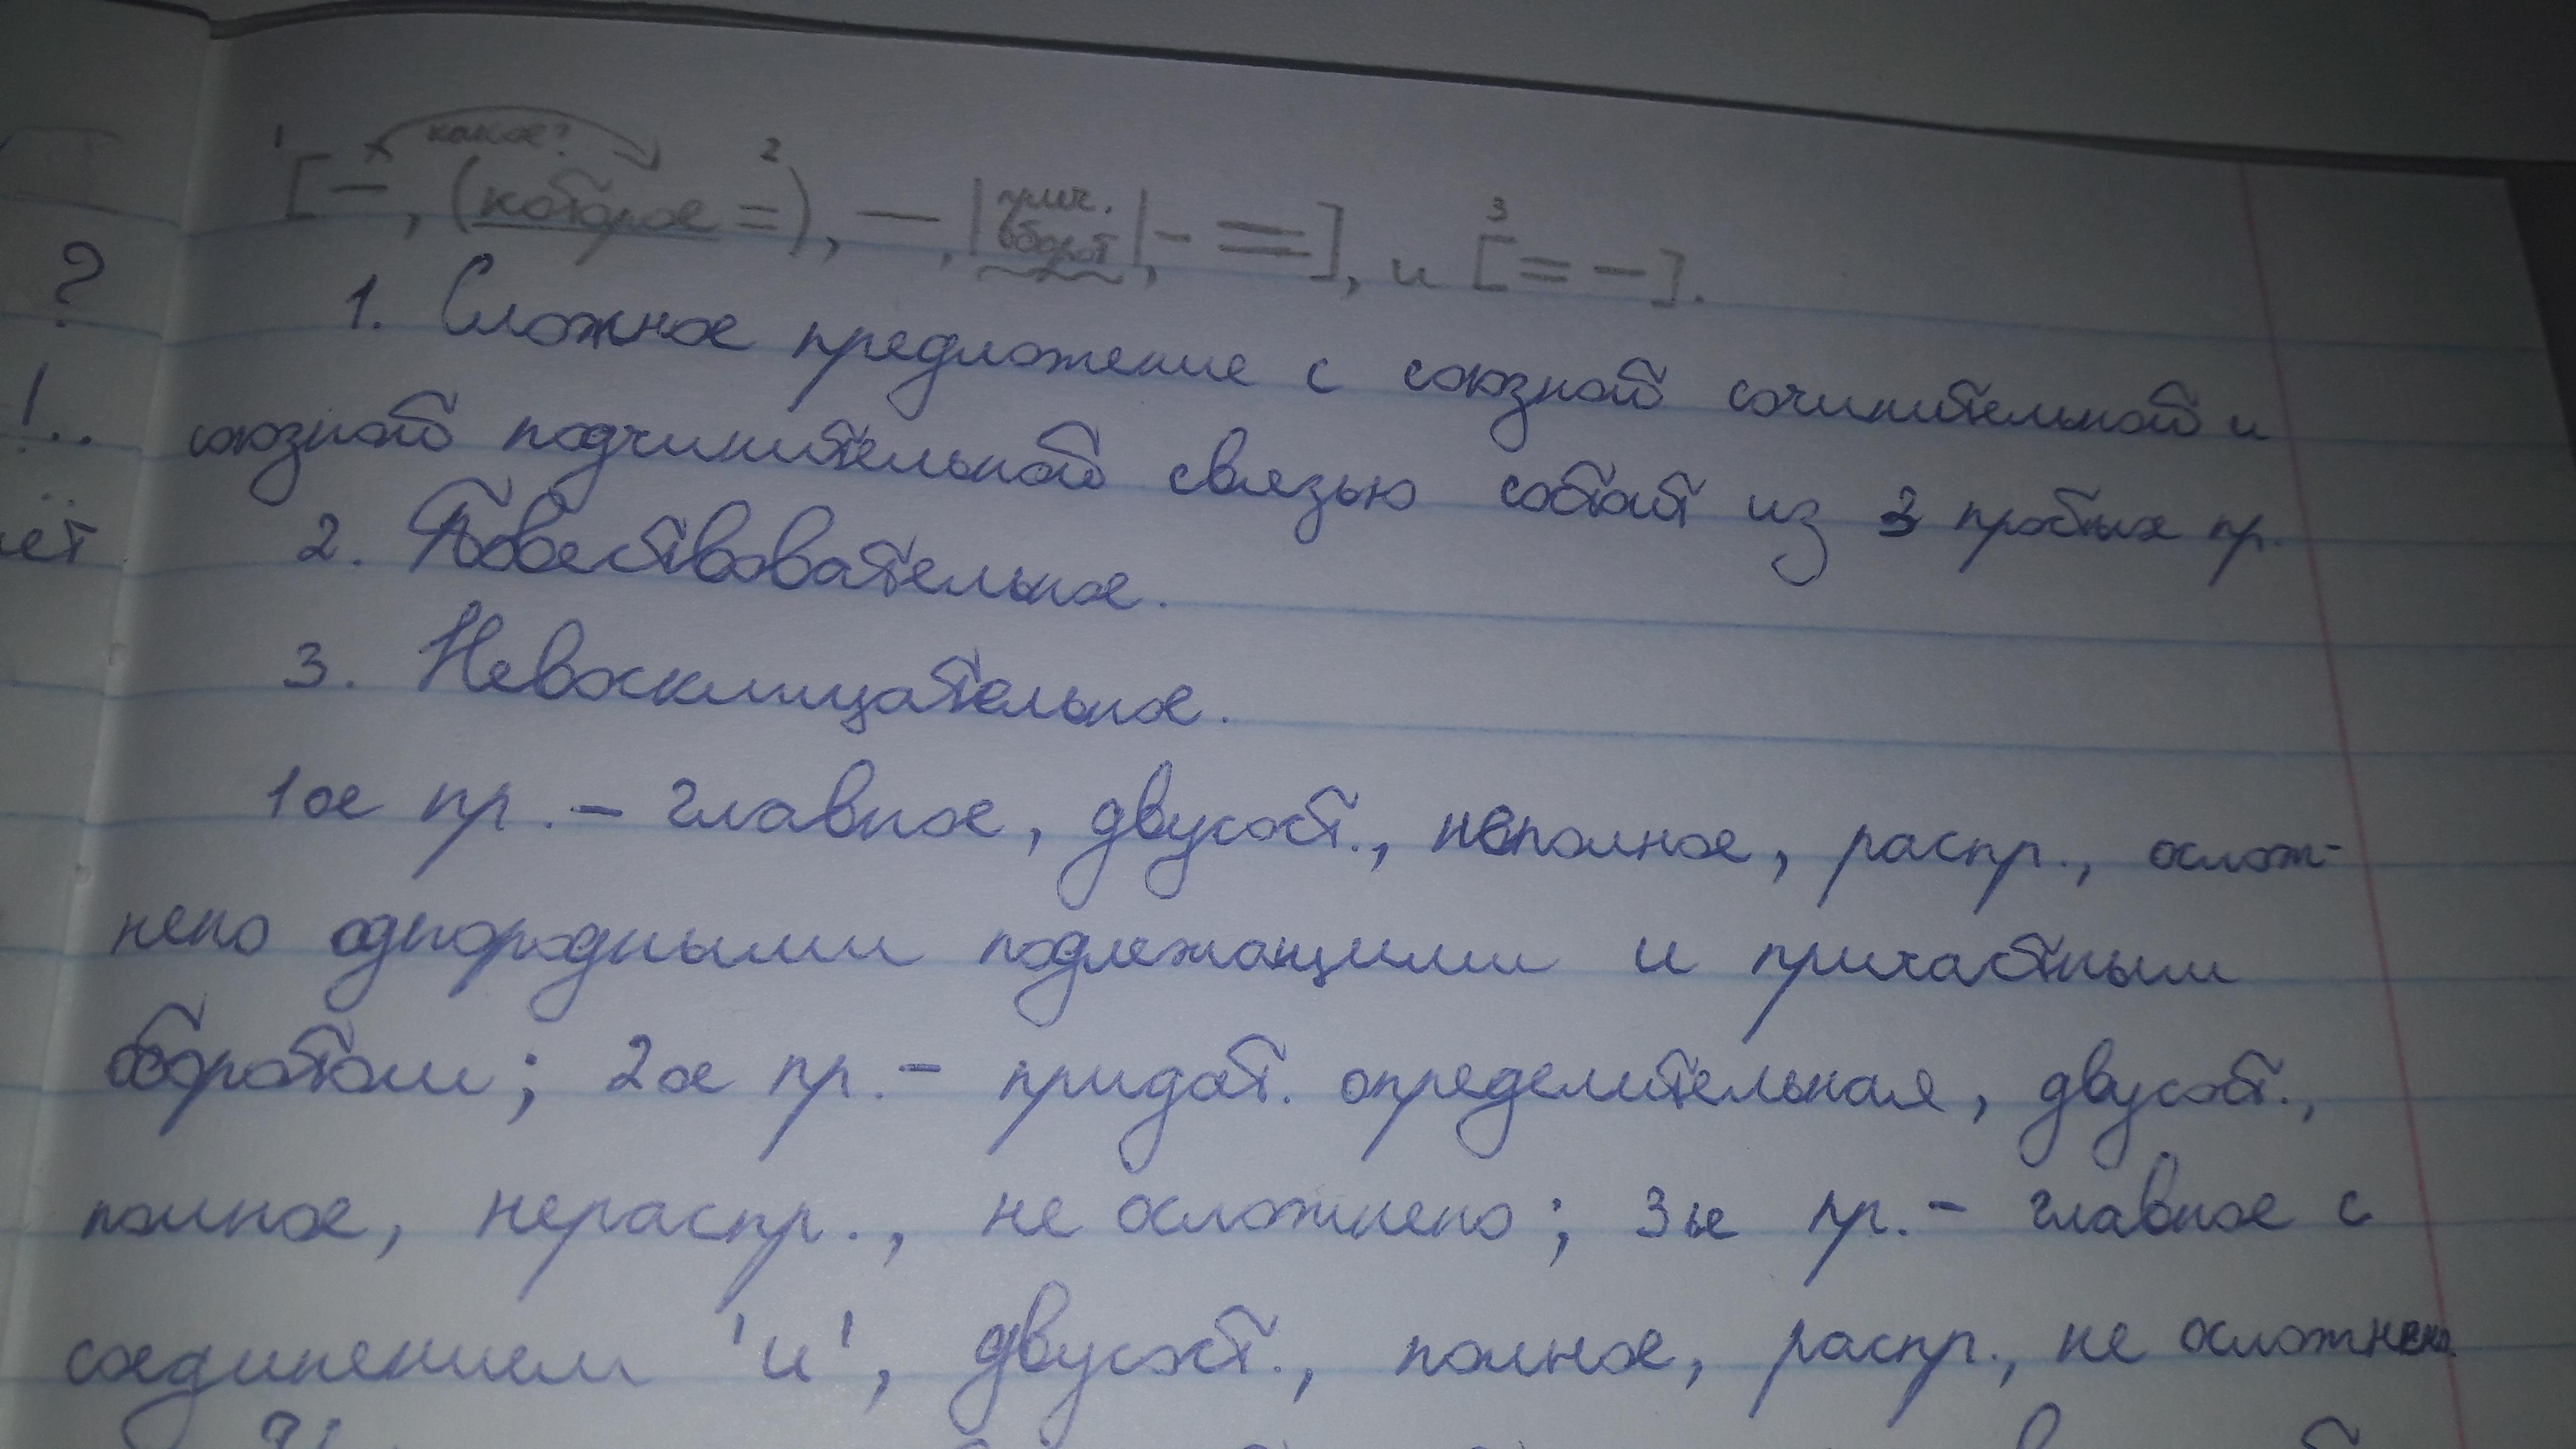 какое?
1 [ – , ( которое = ) 2 , — , | прич. оборот | , – = ] , и 3 [ = – ] .
?
1. Сложное предложение с союзной сочинительной и
!..
союзной подчинительной связью состоит из 3 простых пр.
ёт
2. Повествовательное.
3. Невосклицательное.
1ое пр. – главное, двусост., неполное, распр., ослож-
нено однородными подлежащими и причастным
оборотом; 2ое пр. – придат. определительная, двусост.,
полное, нераспр., не осложнено; 3ье пр. – главное с
соединением 'и', двусост., полное, распр., не осложнено.